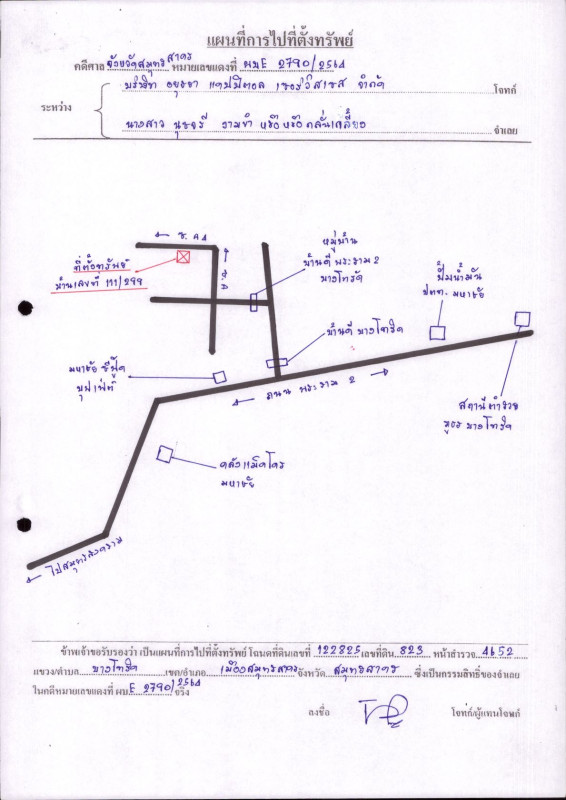 แผนที่การไปที่ตั้งทรัพย์
คดีศาล จังหวัดสมุทรสาคร หมายเลขแดงที่ ผบE 2790/2564
ระหว่าง
บริษัท อยุธยา แคปปิตอล เซอร์วิสเซส จำกัด โจทก์
นางสาว นุชจรี จำเลย
← ซ. A4
ที่ตั้งทรัพย์
บ้านเลขที่ 111/299
หมู่บ้าน
บ้านดี พระราม 2
บางโทรัด
ปั๊มน้ำมัน
ปตท. มหาชัย
บ้านดี บางโทรัด
มหาชัย ซีฟู้ด
บุฟเฟ่ต์
← ถนน พระราม 2 →
สถานีตำรวจ
ภูธร บางโทรัด
คลังแม็คโคร
มหาชัย
← ไปสมุทรสงคราม
ข้าพเจ้าขอรับรองว่า เป็นแผนที่การไปที่ตั้งทรัพย์ โฉนดที่ดินเลขที่ 122825 เลขที่ดิน 823 หน้าสำรวจ 4652
แขวง/ตำบล บางโทรัด เขต/อำเภอ เมืองสมุทรสาคร จังหวัด สมุทรสาคร ซึ่งเป็นกรรมสิทธิ์ของจำเลย
ในคดีหมายเลขแดงที่ ผบE 2790/2564 จริง
ลงชื่อ โจทก์/ผู้แทนโจทก์